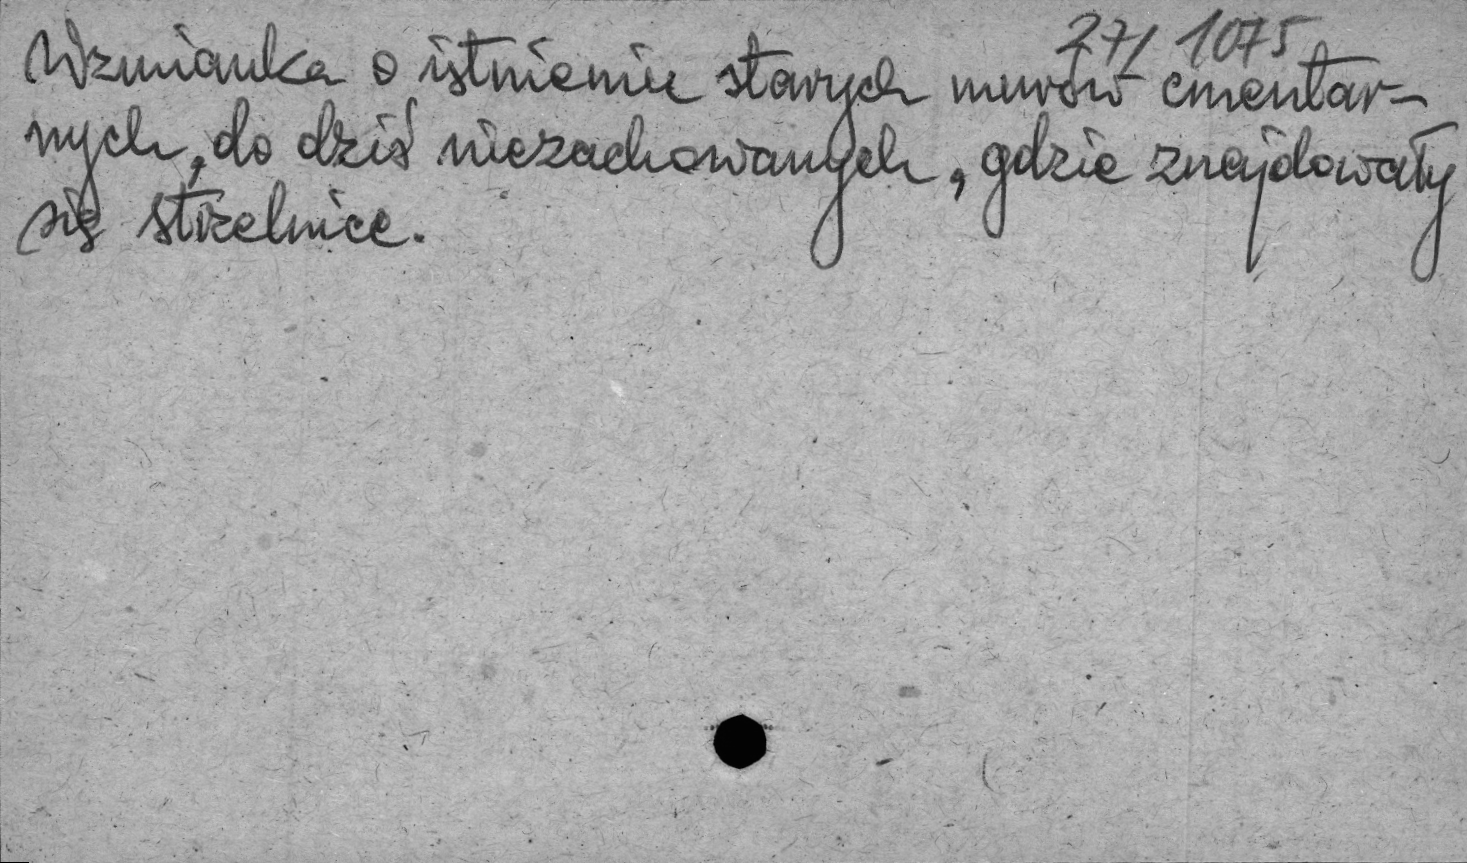 271 1075
Wzmianka o istnieniu starych murów cmentar-
nych, do dziś niezachowanych, gdzie znajdowały
się strzelnice.